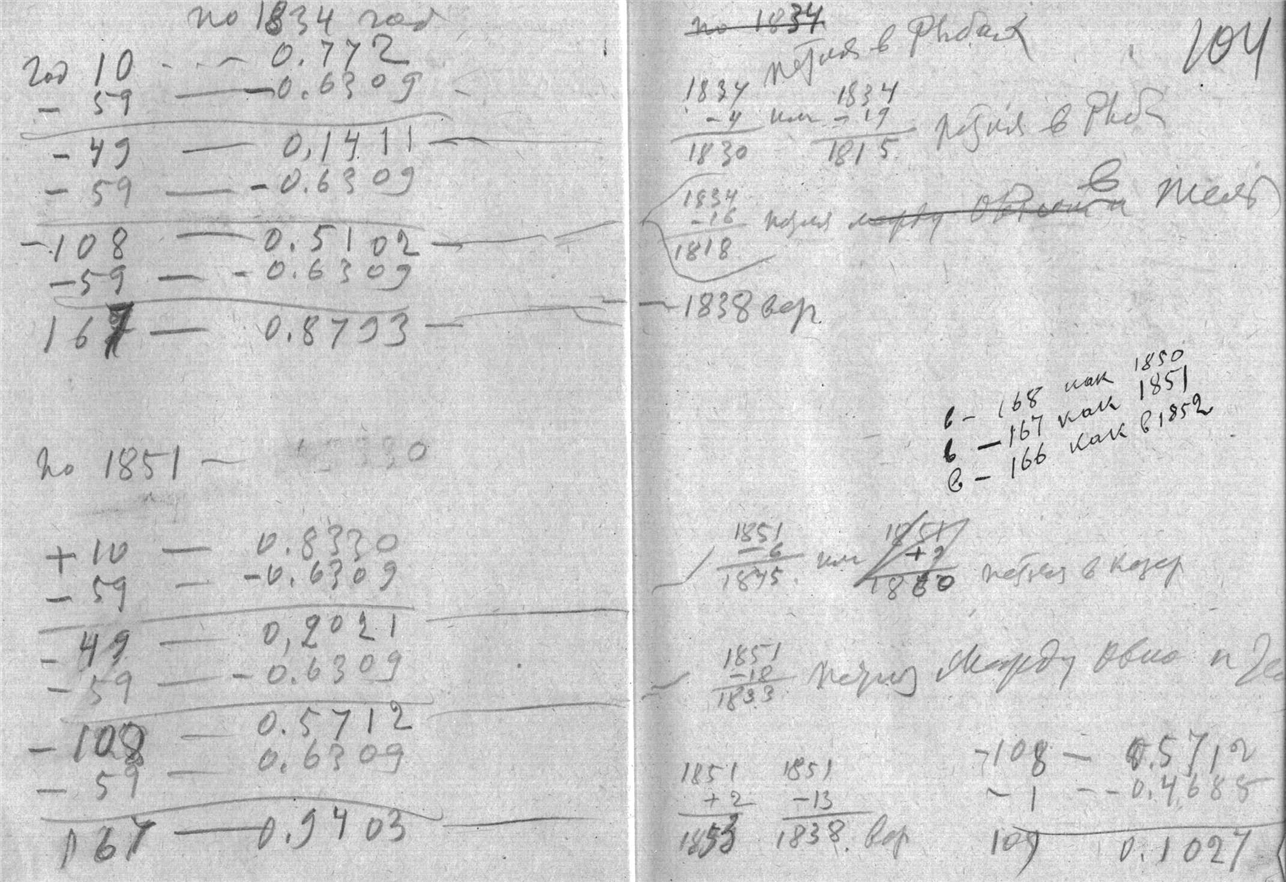 по 1834 год
год 10 - - - 0.772
- 59 — -0.6309
- 49 — 0,1411 —
- 59 — -0.6309
-108 — 0.5102 —
-59 — -0.6309
167 — 0.8793 —
по 1851 —
+10 — 0.8330
- 59 — -0.6309
- 49 — 0,2021
- 59 — -0.6309
-108 — 0.5712
- 59 — 0.6309
167 — 0.9403
по 1834
петля в Рыбах
104
1834 1834
-4 или -19 петля в Рыб
1830 1815
1834
-16 петля между в
1818
- 1838 вор.
в - 168 как 1850
в - 167 как 1851
в - 166 как в 1852
1851 1851
-6 или +9
1845 1860 петля в козер
1851
-18 петля между Овна и
1833
-108 — 0.5712
- 1 - -0.4685
109 0.1027
1851 1851
+2 -13
1853 1838. вор